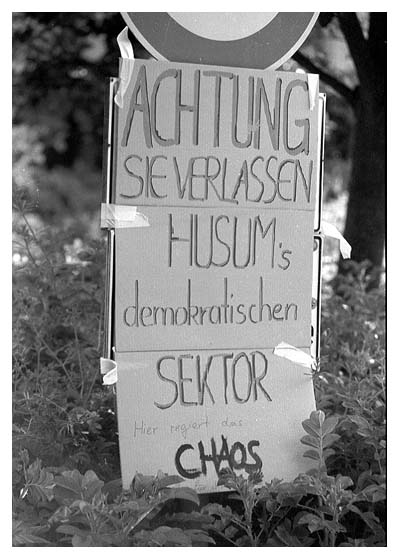 ACHTUNG
SIE VERLASSEN
HUSUM's
demokratischen
SEKTOR
Hier regiert das
CHAOS